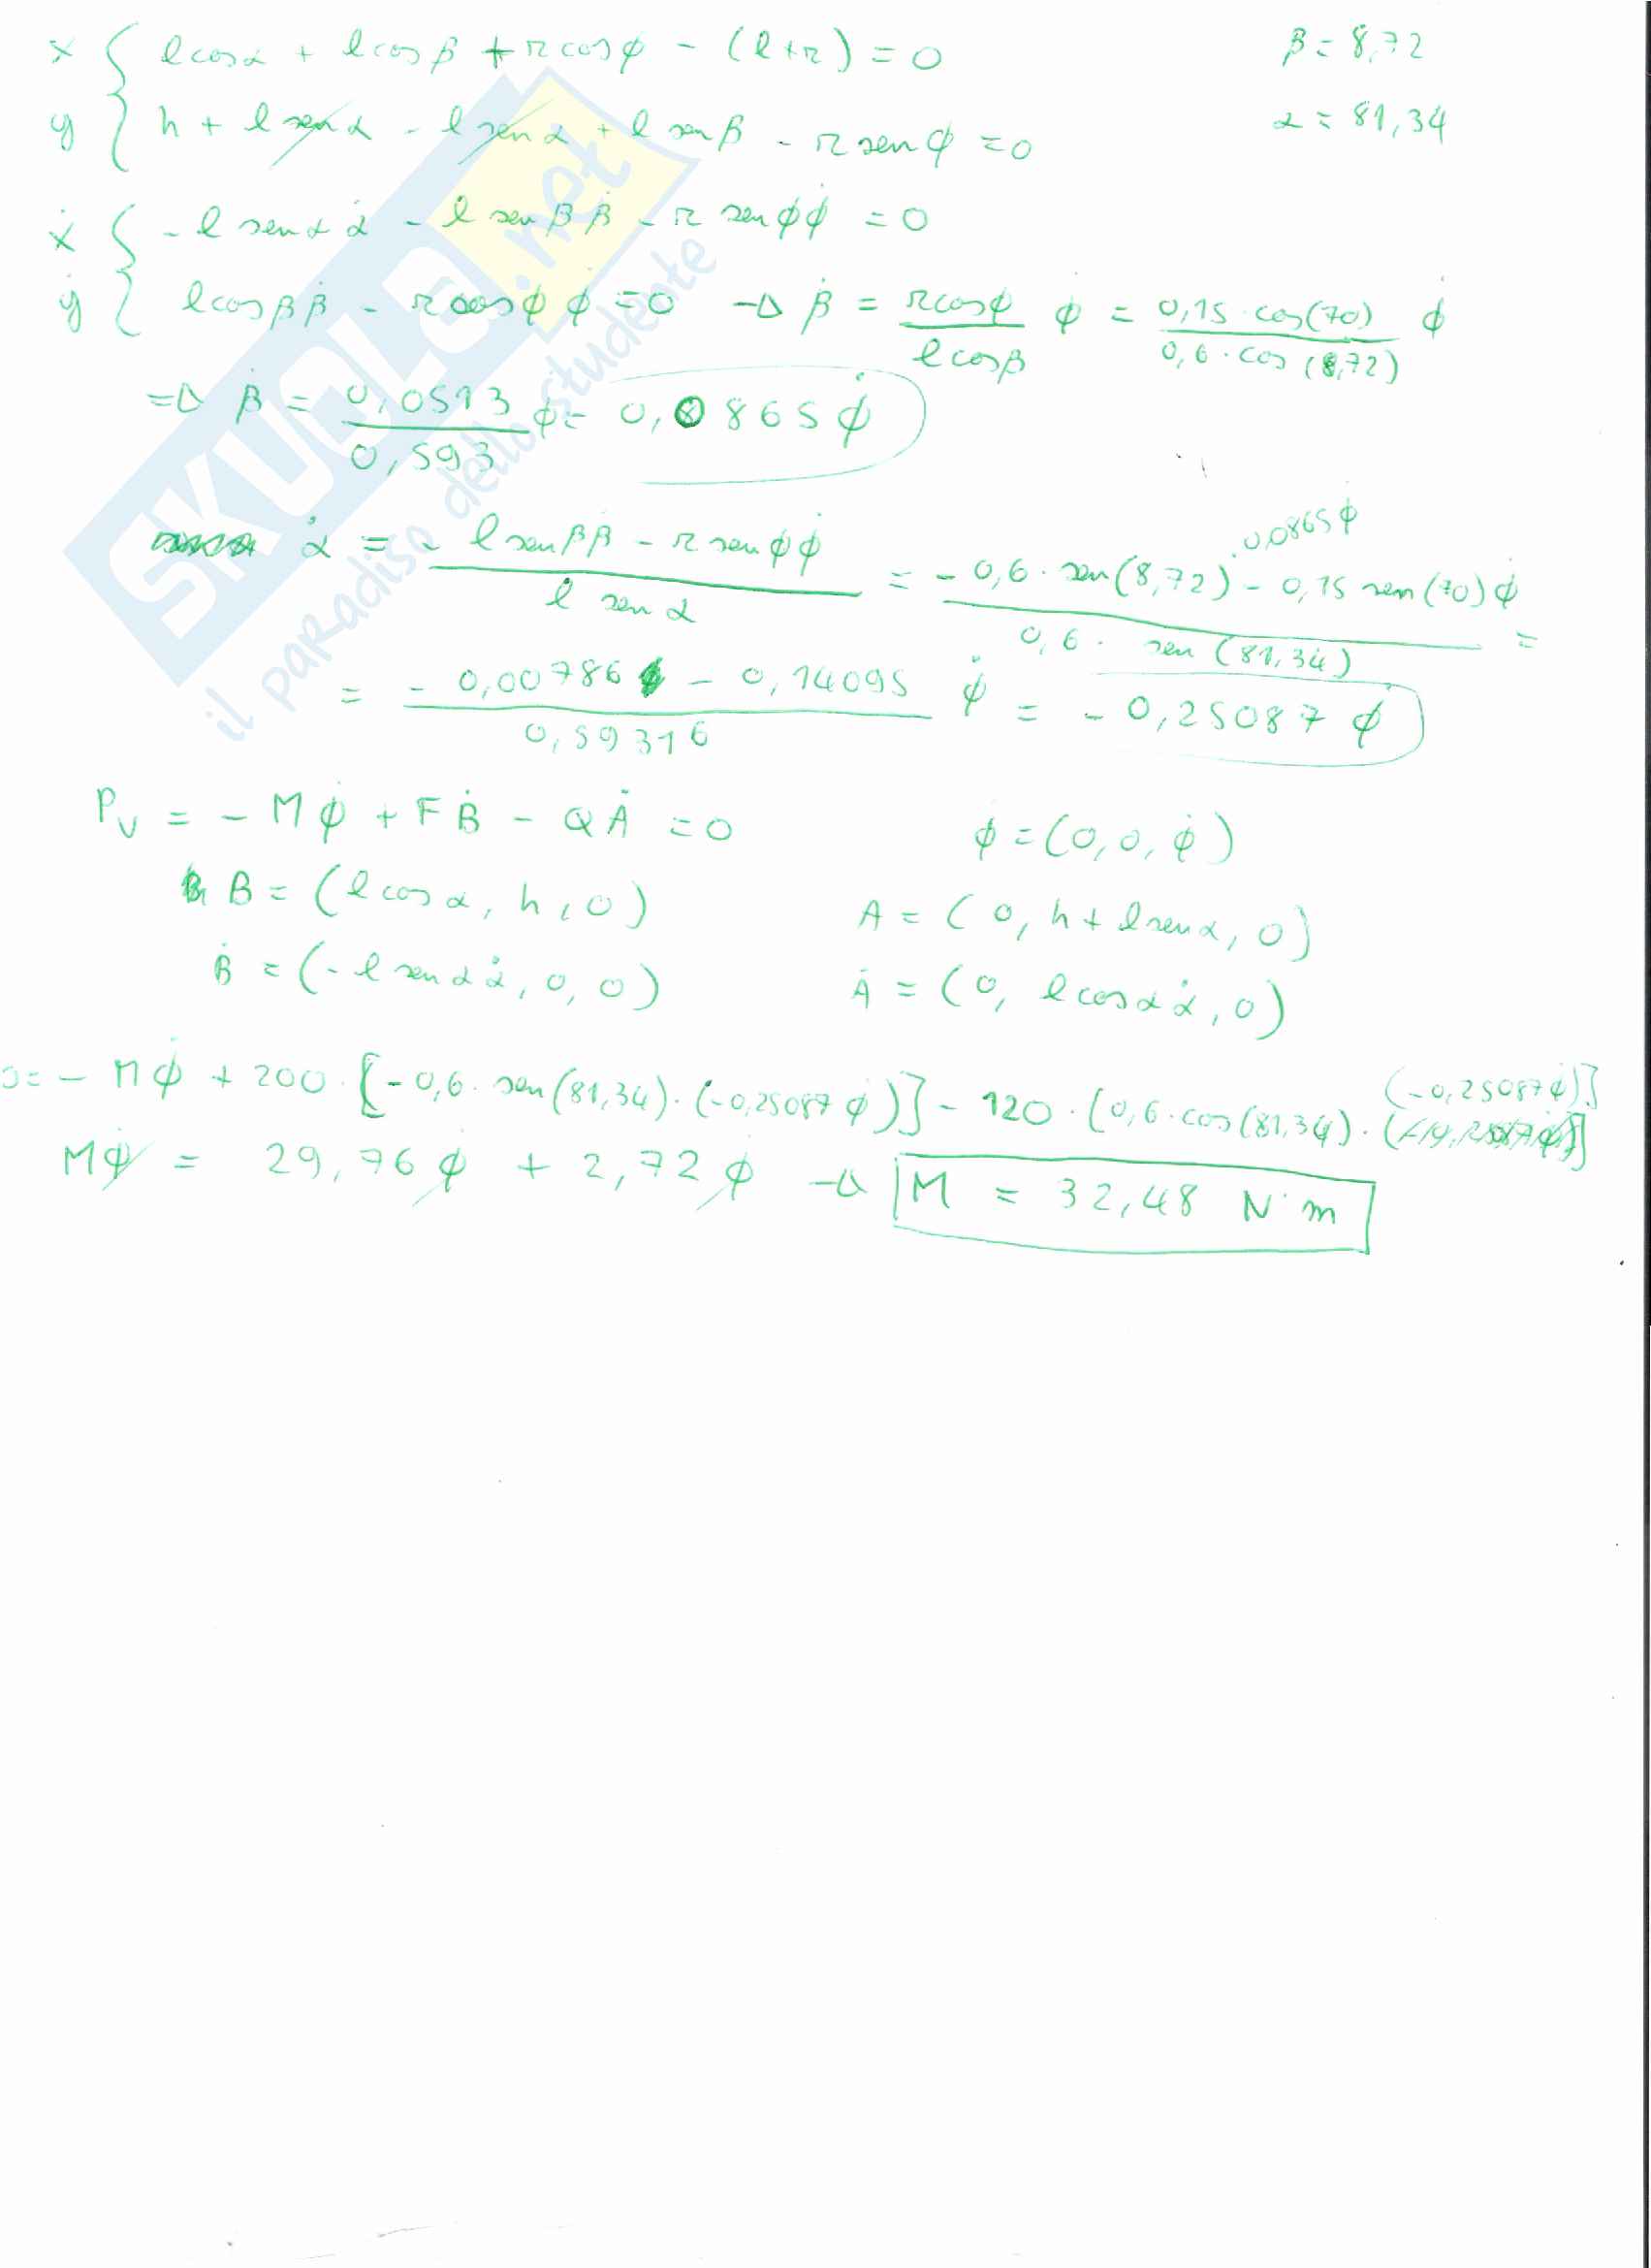 x { l cos α + l cos β + r cos φ - (l+r) = 0
β = 8,72
y { h + l sen α - l sen α + l sen β - r sen φ = 0
α = 81,34
ẋ { - l sen α α̇ - l sen β β̇ - r sen φ φ̇ = 0
ẏ { l cos β β̇ - r cos φ φ̇ = 0 → β̇ = r cos φ / l cos β φ̇ = 0,15 · cos(70) / 0,6 · cos(8,72) φ̇
⇒ β̇ = 0,0513 / 0,593 φ̇ = 0,0865 φ̇
α̇ = - l sen β β̇ - r sen φ φ̇ / l sen α = - 0,6 · sen(8,72) · 0,0865 φ̇ - 0,15 sen(70) φ̇ / 0,6 · sen(81,34) =
= - 0,00786 - 0,14095 / 0,59316 φ̇ = - 0,25087 φ̇
Pv = - M φ̇ + F Ḃ - Q Ȧ = 0
φ̇ = (0, 0, φ̇)
B = (l cos α, h, 0)
A = (0, h + l sen α, 0)
Ḃ = (- l sen α α̇, 0, 0)
Ȧ = (0, l cos α α̇, 0)
0 = - M φ̇ + 200 · [-0,6 · sen(81,34) · (-0,25087 φ̇)] - 120 · [0,6 · cos(81,34) · (-0,25087 φ̇)]
M φ̇ = 29,76 φ̇ + 2,72 φ̇ → M = 32,48 N·m
SKUOLA.net
il paradiso dello studente